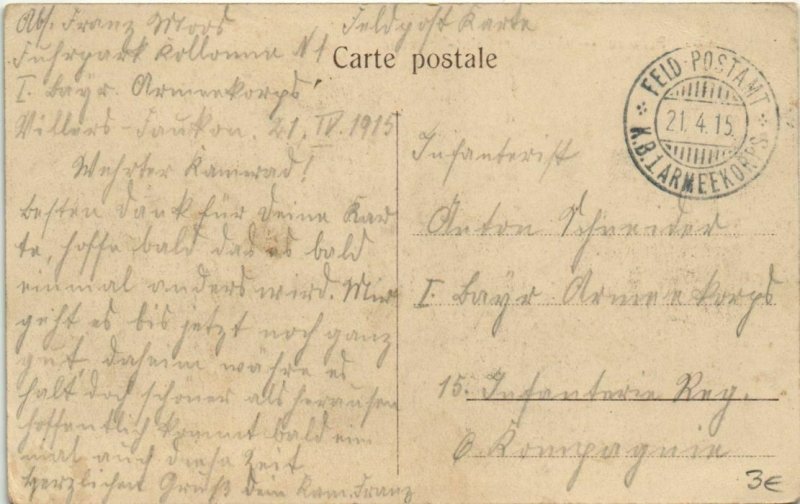 Abs. Franz Moos
Feldpost Karte
Fuhrpark Kollonne N 1
I. Bayr. Armeekorps
Villers-Faukon. 21. IV. 1915
Wehrter Kamerad!
Besten Dank für Deine Kar
te, hoffe bald das es bald
einmal anders wird. Mir
geht es bis jetzt noch ganz
gut, daheim währe es
halt doch schöner als herausen
hoffentlich kommt bald ein
mal auch diese Zeit
Herzlichen Gruß dein Kam. Franz
Carte postale
FELD-POSTAMT
21.4.15.
K.B.1 ARMEEKORPS
Infanterist
Anton Schneider
I. Bayr. Armeekorps
15. Infanterie Reg.
6 Kompagnie
3€